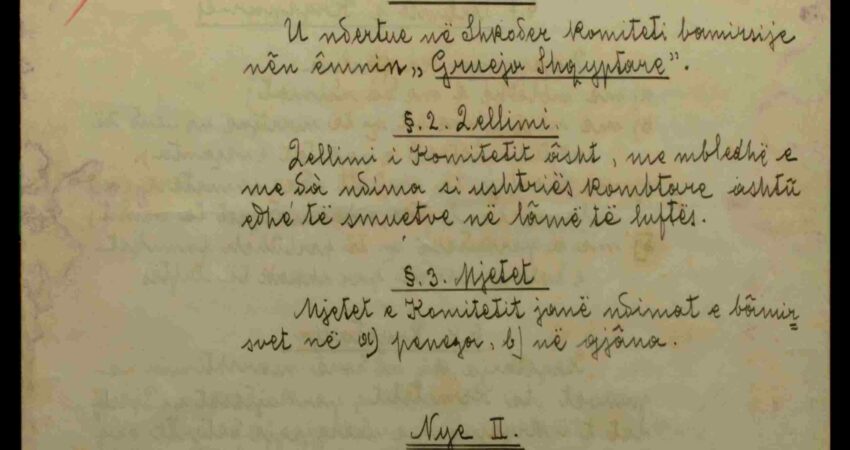 U ndertue në Shkoder komiteti bamirsije
nën êmnin „Grueja Shqyptare".
§. 2. Qellimi.
Qellimi i Komitetit âsht, me mbledhë e
me dà ndima si ushtriës kombtare ashtû
edhé të smuetve në lâmë të luftës.
§. 3. Mjetet
Mjetet e Komitetit janë ndimat e bâmir=
svet në a) penega, b) në gjâna.
Nye II.